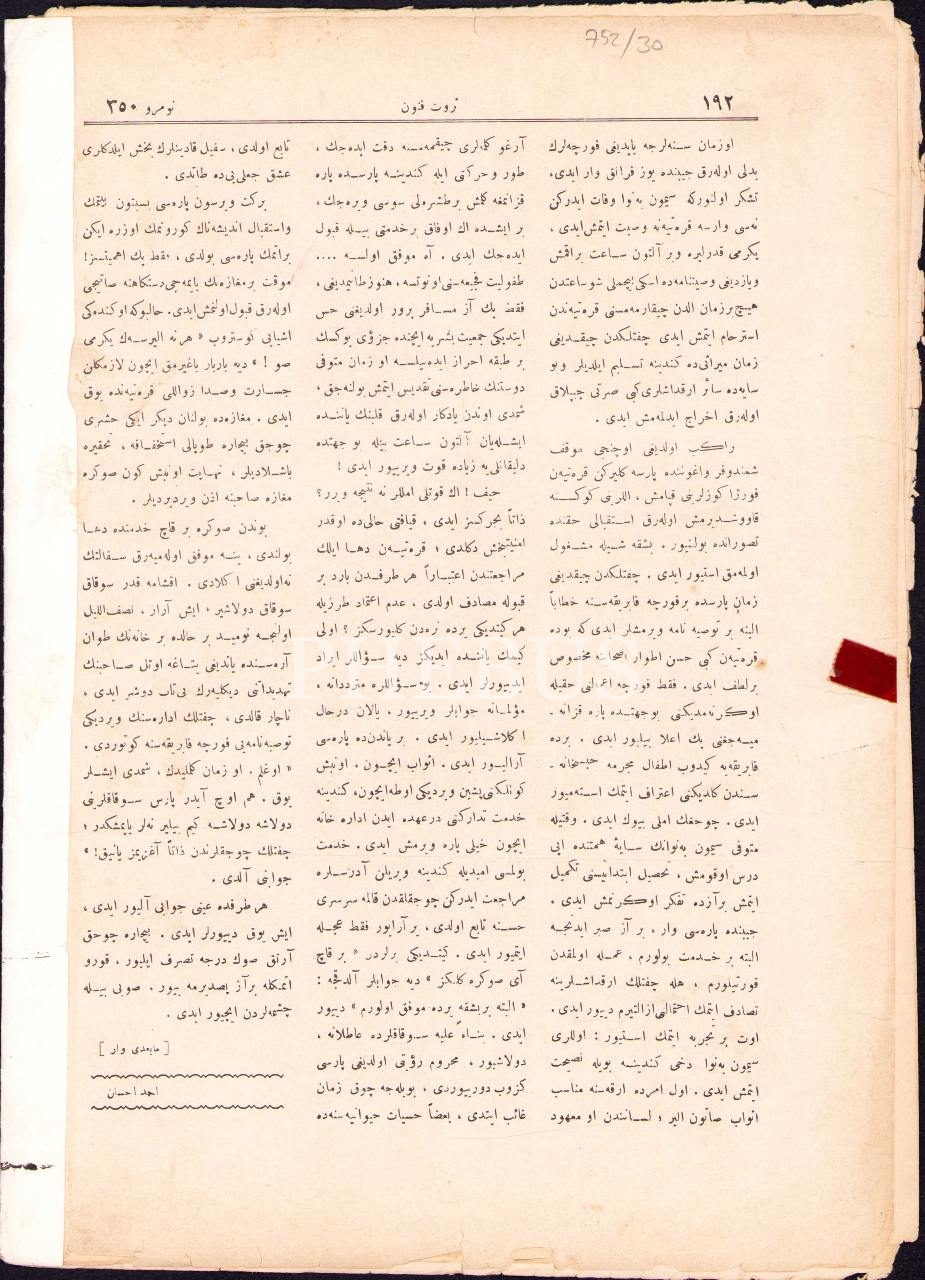 752/30
١٩٢
ثروت فنون
نومرو ٣٥٠
اوزمان سنه‌لرجه یاپدیغی فورچه‌لرك
بدلی اوله‌رق جیبنده یوز فرانق وار ایدی،
تشكر اولنوركه سیمون به‌نوا وفات ایدركن
نه‌سی وارسه قره‌تیه‌نه وصیت ایتمش‌ایدی ،
یكرمی قدرلیره وبر آلتون ساعت براقمش
ویازدیغی وصیتنامه‌ده اسكی بیچمه‌لی شوساعتدن
هیچ برزمان الدن چیقارمه‌مسنی قره‌تیه‌ندن
استرحام ایتمش ایدی چفتلكدن چیقدیغی
زمان میراثی‌ده كندینه تسلیم ایلدیلر وبو
سایه‌ده سائر ارقداشلری‌كبی صرتی چیپلاق
اوله‌رق اخراج ایدلمه‌مش ایدی .
راكب اولدیغی اوچنجی موقف
شمندوفر واغوننده پارسه كلیركن قره‌تیه‌ن
فورژا كوزلرینی قپامش ، اللرینی كوكسنه
قاووشدیرمش اوله‌رق استقبالی حقنده
تصوراتده بولنیور . بشقه شیله مشغول
اولمه‌مق استیور ایدی . چفتلكدن چیقدیغی
زمان پارسده برفورچه فابریقه‌سنه خطاباً
البنه بر توصیه نامه ویرمشلر ایدی كه بوده
قره‌تیه‌ن كبی حسن اطوار اصحابنه مخصوص
برلطف ایدی . فقط فورچه اعمالنی حقیله
اوكرنه‌مدیكنی بوجهتده پاره قزانه ـ
میه‌جغنی پك اعلا بیلیور ایدی . برده
فابریقه‌یه كیدوب اطفال مجرمه حبسخانه ـ
سندن كلدیكنی اعتراف ایتمك استه‌میور
ایدی . چوجغك املی بیوك ایدی . وقتیله
متوفی سیمون به‌نوانك سایۀ همتنده ایی
درس اوقومش ، تحصیل ابتدائیسنی تكمیل
ایتمش برآزده تفكر اوكرنمش ایدی .
جیبنده پاره‌سی وار ، بر آز صبر ایدنجه
البته بر خدمت بولورم ، عمله اولمقدن
قورتیلورم ، هله چفتلك ارقداشلرینه
تصادف ایتمك احتمالنی ازالتیرم دییور ایدی.
اوت بر تجربه ایتمك استیور : اوللری
سیمون به‌نوا دخی كندینه بویله نصیحت
ایتمش ایدی . اول امرده ارقه‌سنه مناسب
اثواب صاتون الیر ؛ لسانندن او معهود
آرغو كلمه‌لری چیقمه‌مسنه دقت ایده‌جك ،
طور وحركتی ایله كندینه پارسده پاره
قزانمغه كلمش برطشره‌لی سوسی ویره‌جك ،
بر ایشده اك اوفاق برخدمتی بیله قبول
ایده‌جك ایدی . آه موفق اولسه ....
طفولیت فجیعه‌سنی اونوتسه ، هنوز طانیمدیغی ،
فقط پك آز مسافر پرور اولدیغنی حس
ایتدیكی جمعیت بشریه ایچنده جزؤی یوكسك
بر طبقه احراز ایده‌بیلسه او زمان متوفی
دوستنك خاطره‌سنی تقدیس ایتمش بولنه‌جق،
شمدی اوندن یادكار اوله‌رق قلبنك یاننده
ایشله‌یان آلتون ساعت بیله بو جهتده
دلیقانلی‌یه زیاده قوت ویرییور ایدی !
حیف ! اك قوتلی امللر نه نتیجه ویرر؟
ذاتاً بجركسز ایدی ، قیافتی حالی‌ده اوقدر
امنیتبخش دكلدی ؛ قره‌تیه‌ن دها ایلك
مراجعتندن اعتباراً هر طرفدن بارد بر
قبوله مصادف اولدی ، عدم اعتماد طرزیله
هركیتدیكی یرده نره‌دن كلیورسكز ؟ اولی
كیمك یاننده ایدیكز دیه سؤاللر ایراد
ایدییورلر ایدی . بو سؤاللره مترددانه ،
مؤلمانه جوابلر ویرییور ، یالان درحال
اكلاشیلیور ایدی . بر یاندن‌ده پاره‌سی
آزالیور ایدی . اثواب ایچون ، اونبش
كونلكنی پشین ویردیكی اوطه ایچون، كندینه
خدمت تداركنی درعهده ایدن اداره خانه
ایچون خیلی پاره ویرمش ایدی . خدمت
بولمسی امیدیله كندینه ویریلن آدرسلره
مراجعت ایدركن چوجقلقدن قالمه سرسری
حسنه تابع اولدی ، بر آرایور فقط عجله
ایتمیور ایدی . كیتدیكی یرلردر « بر قاچ
آی صوكره كلكز » دیه جوابلر آلدقجه :
« البته بربشقه یرده موفق اولورم » دییور
ایدی . بناءً علیه سوقاقلرده عاطلانه ،
دولاشیور ، محروم رؤیتی اولدیغی پارسی
كزوب دوریوردی . بویله‌جه چوق زمان
غائب ایتدی ، بعضاً حسیات حیوانیه‌سنه‌ده
تابع اولدی ، سفیل قادینلرك بخش ایلدكلری
عشق جعلی‌یی‌ده طاتدی .
بركت ویرسون پاره‌سی بسبتون بیتمك
واستقبال اندیشه‌ناك كورونمك اوزره ایكن
براتمك پاره‌سی بولدی ، فقط پك اهمیتسز!
موقت برمغازه‌نك یایمه‌جی دستكاهنه صاتیجی
اوله‌رق قبول اولنمش ایدی. حالبوكه اوكنده‌كی
اشیایی كوستروب « هر نه الیرسه‌ك یكرمی
صو ! » دیه باربار باغیرمق ایچون لازمكلن
جسارت وصدا زواللی قره‌تیه‌نده یوق
ایدی . مغازه‌ده بولنان دیكر ایكی حشری
چوجق بیچاره طوپالی استخفافه ، تحقیره
باشلادیلر ، نهایت اونبش كون صوكره
مغازه صاحبنه اذن ویردیردیلر .
بوندن صوكره بر قاچ خدمتده دها
بولندی ، ینه موفق اوله‌میه‌رق سفالتك
نه‌اولدیغنی اكلادی . اقشامه قدر سوقاق
سوقاق دولاشیر ، ایش آرار ، نصف‌اللیل
اولنجه نومید بر حالده بر خانه‌نك طوان
آره‌سنده یاتدیغی یتاغه اوتل صاحبنك
تهدیداتنی دیكلیه‌رك بی‌تاب دوشر ایدی ،
ناچار قالدی ، چفتلك اداره‌سنك ویردیكی
توصیه‌نامه‌یی فورچه فابریقه‌سنه كوتوردی .
« اوغلم . او زمان كلملیدك ، شمدی ایشلر
یوق . هم اوچ آیدر پارس سوقاقلرینی
دولاشه دولاشه كیم بیلیر نه‌لر یاپمشكدر ؛
چفتلك چوجقلرندن ذاتاً آغزیمز یانیق! »
جوابنی آلدی .
هر طرفده عینی جوابی آلیور ایدی ،
ایش یوق دییورلر ایدی . بیچاره چوجق
آرتق صوك درجه تصرف ایلیور ، قورو
اتمكله برآز پصدیرمه ییور . صویی بیله
چشمه‌لردن ایچیور ایدی .
[ مابعدی وار ]
احمد احسان